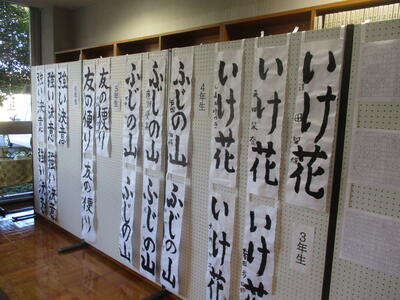 強い決意
強い決意
強い決意
強い決意
強い決意
6年生
友の便り
友の便り
友の便り
5年生
ふじの山
ふじの山
ふじの山
ふじの山
ふじの山
ふじの山
4年生
いけ花
いけ花
いけ花
いけ花
いけ花
3年生